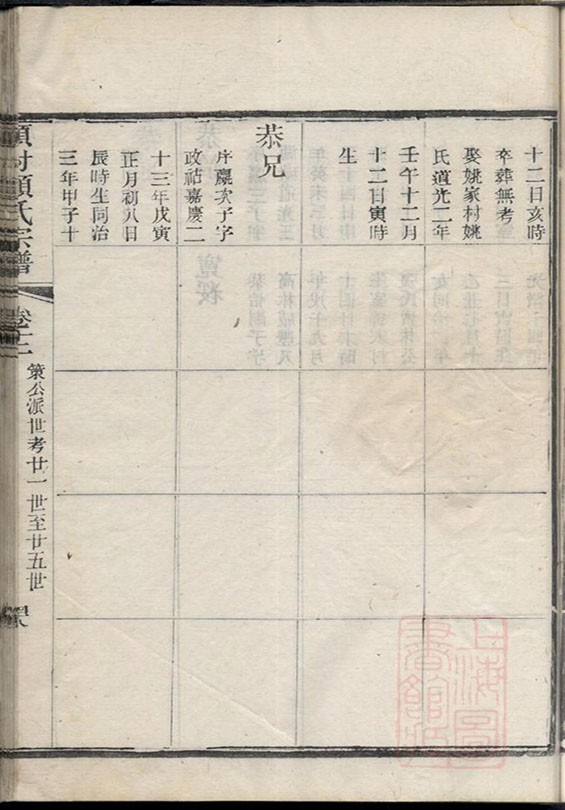 十二日亥時
卒葬無考
娶姚家村姚
氏道光二年
壬午十二月
十二日寅時
生
恭兄
序飈次子字
政祜嘉慶二
十三年戊寅
正月初八日
辰時生同治
三年甲子十
項氏宗譜
卷十二
策公派世考廿一世至廿五世
上海圖
書館藏